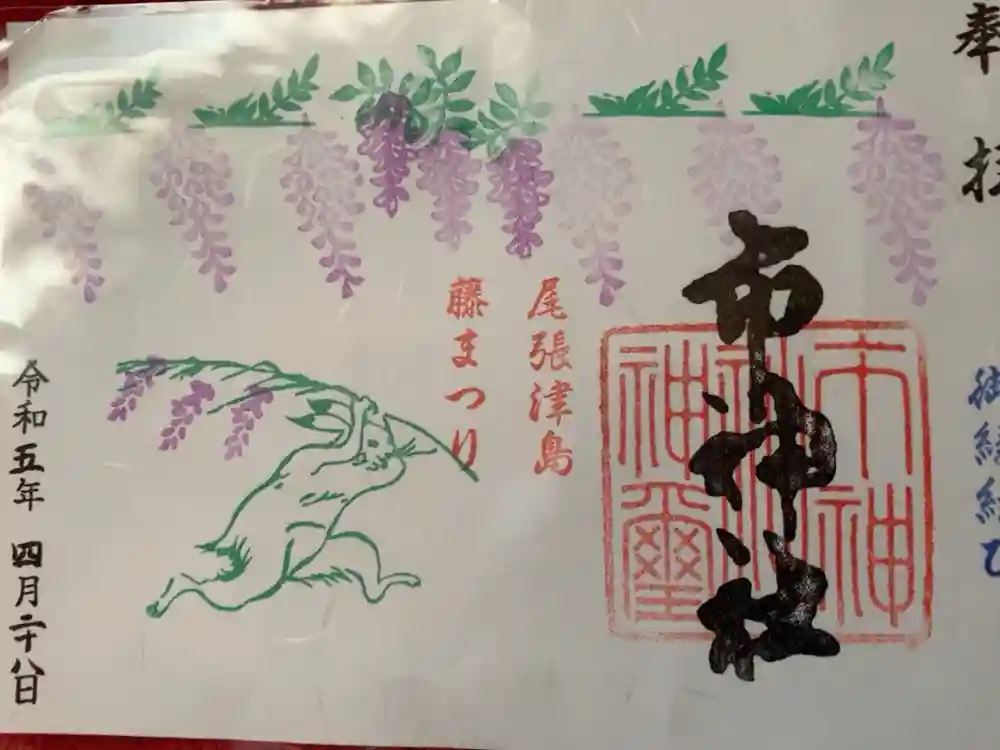 奉拝
御縁結び
市神社
尾張津島
藤まつり
令和五年 四月二十八日